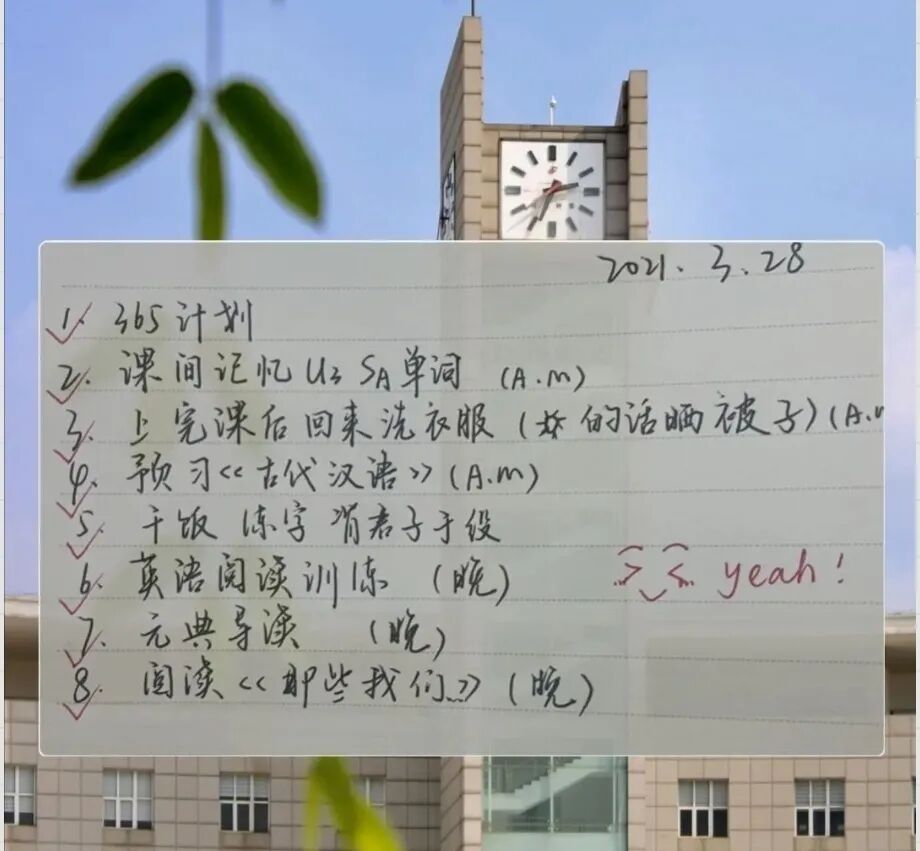 2021. 3. 28
1. 365计划
2. 课间记忆U3 SA单词 (A.m)
3. 上完课后回来洗衣服(好的话晒被子)(A.
4. 预习《古代汉语》(A.m)
5. 干饭 练字 背君子于役
6. 英语阅读训练 (晚)
> < yeah!
7. 元典导读 (晚)
8. 阅读《那些我们..》(晚)